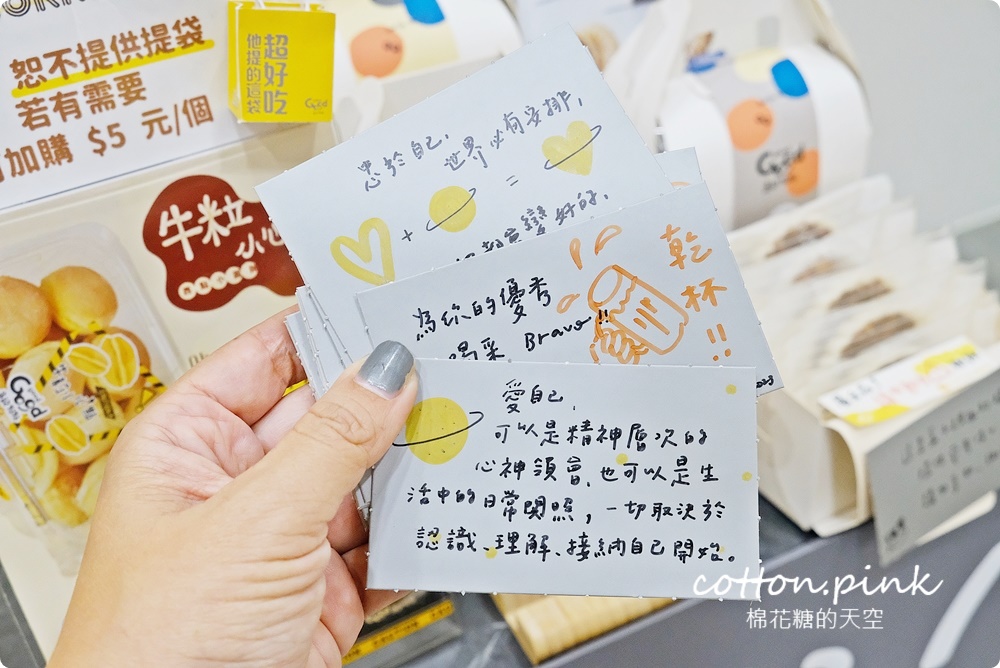 恕不提供提袋
若有需要
加購 $5 元/個
超好吃
他提的這袋
Good
牛粒
小心
忠於自己,
世界必有安排,
+ =
都會變好的,
為你的優秀
喝采 Bravo!!
乾杯!!
2023
愛自己,
可以是精神層次的
心神領會,也可以是生
活中的日常関照,一切取決於
認識、理解、接納自己開始。
cotton.pink
棉花糖的天空